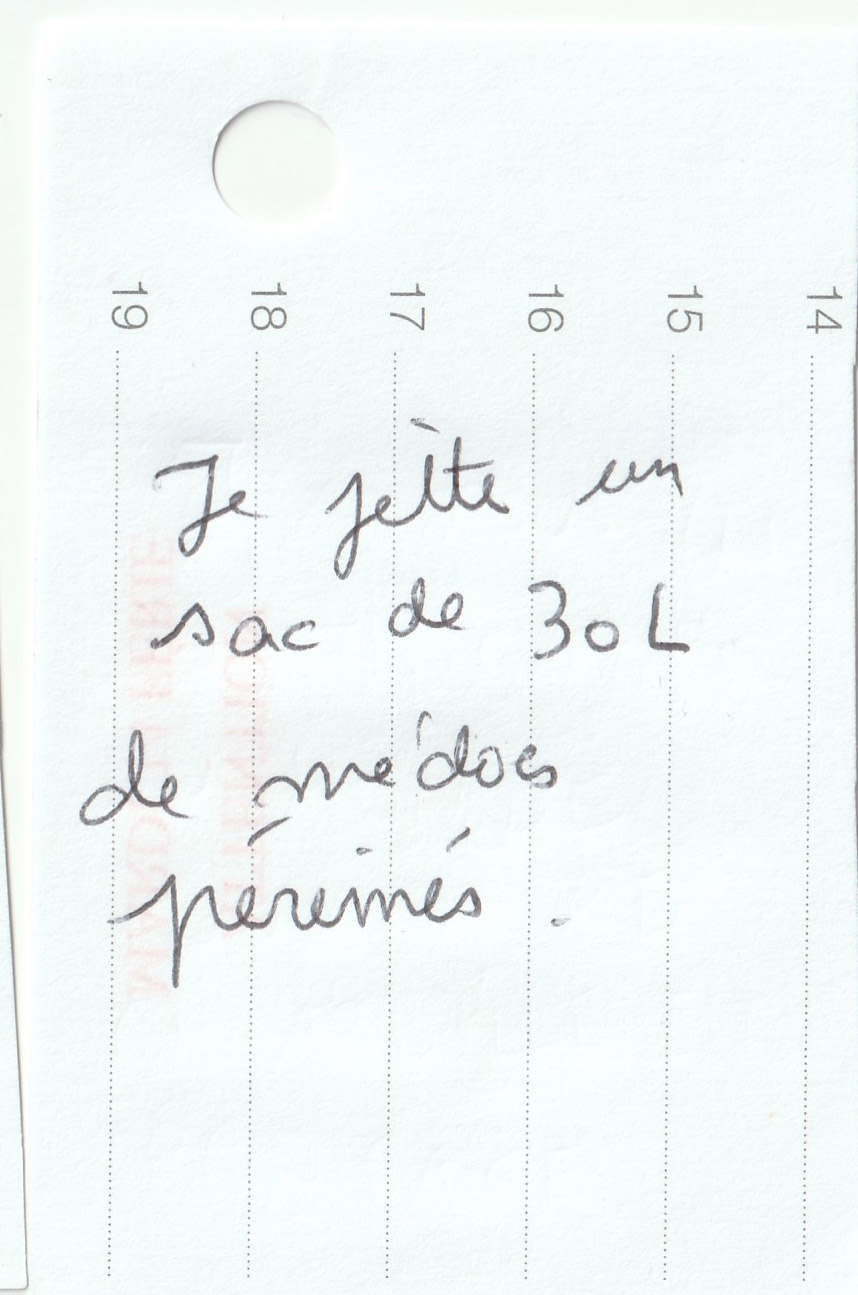 19 18 17 16 15 14
Je jètte un
sac de 30L
de médocs
périmés.